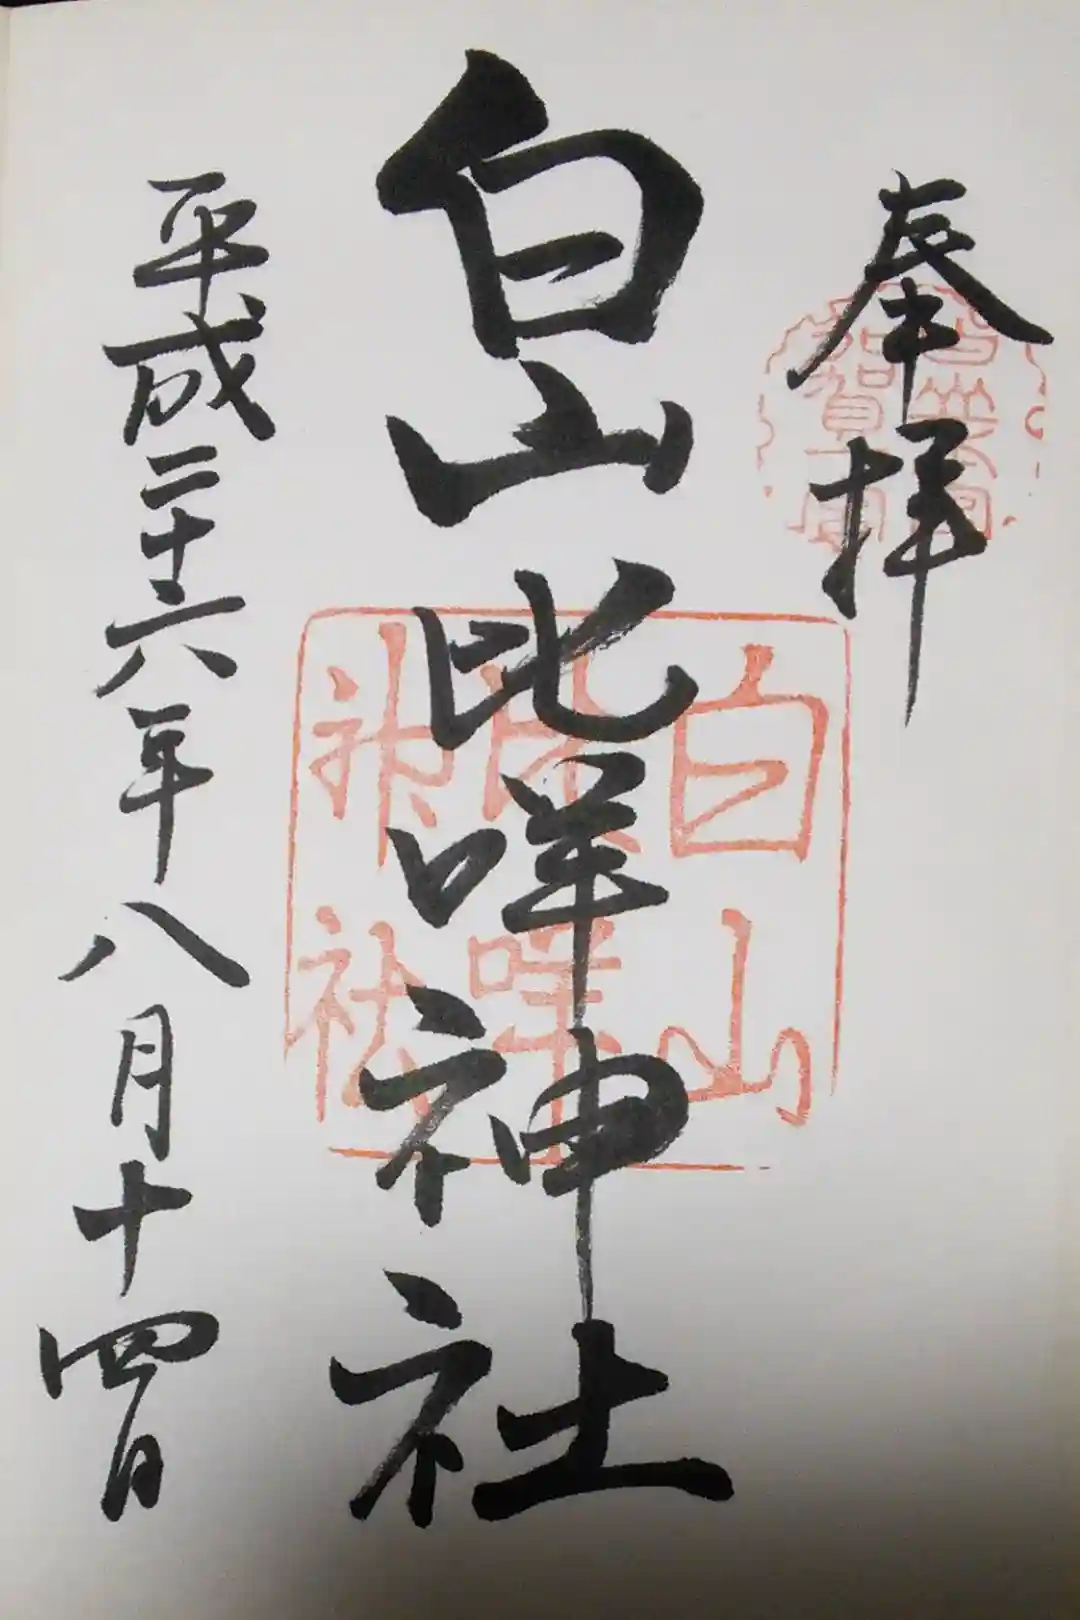 奉拝
白山比咩神社
平成二十六年八月十四日
白山
比咩
神社